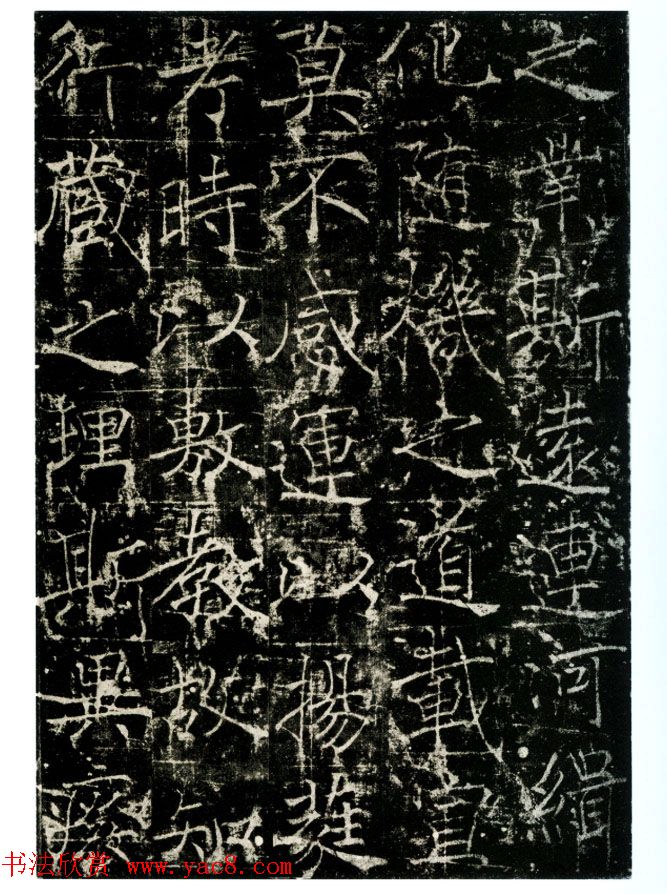 之業斯遠連河緝
化隨機之道載宣
莫不感運以揚蕤
考時以敷教故知
行藏之理斯異
书法欣赏 www.yac8.com